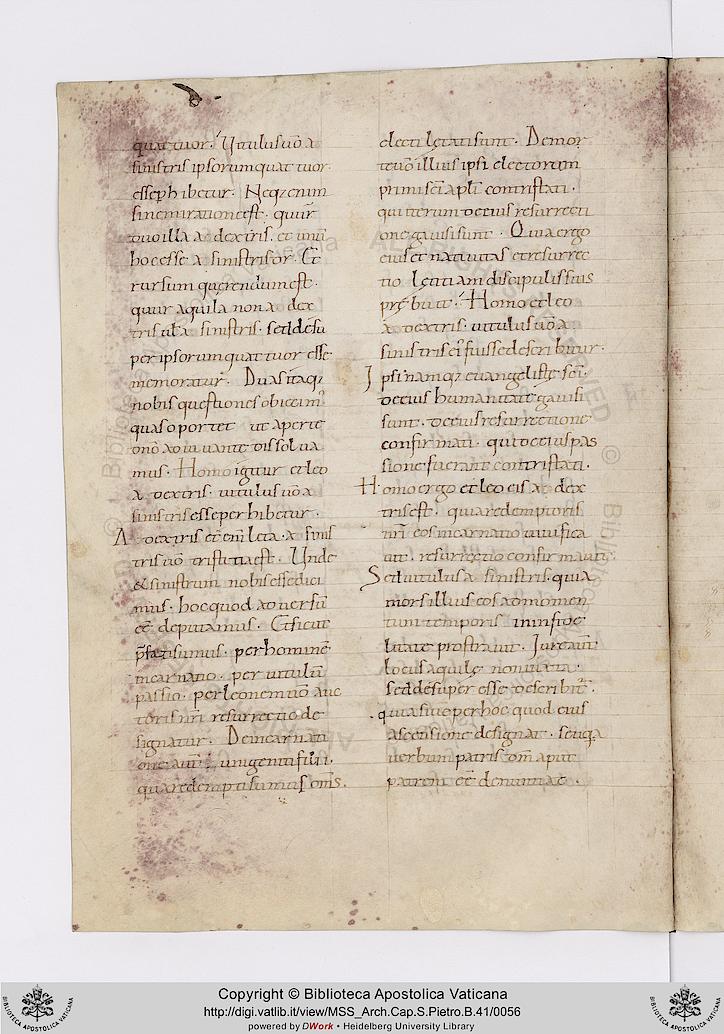 quattuor. Uitulus uō a
sinistris ipsorum quattuor
esse phibetur. Neq; enim
sine mira ratione est. quur
duo illa a dextris. et unū
hoc esse a sinistris or. Et
rursum querendum est.
quur aquila non a dex
tris ut a sinistris. sed desu
per ipsorum quattuor esse
memoratur. Duas itaq;
nobis questiones obiecim
quas oportet ut aperte
dnō adiuuante dissolua
mus. Homo igitur et leo
a dextris. uitulus uō a
sinistris esse perhibetur.
A dextris etēm leta. a sinis
tris uō tristitia est. Unde
& sinistrum nobis esse dici
mus. hoc quod aduersū
eē deputamus. Et sicut
p̄fati sumus. per hominē
incarnatio. per uitulū
passio. per leonem uō auc
toris nr̄i resurrectio de
signatur. De incarnati
one aut unigeniti filii.
qua redempti sumus om̄s.
electi lętati sunt. De mor
te uō illius ipsi electorum
primi sc̄i apl̄i contristati.
qui iterum de eius resurrecti
one gauisi sunt. Quia ergo
eius et natiuitas et resurrec
tio lętitiam discipulis suis
prębuit. Homo et leo
a dextris. uitulus uō a
sinistris ei fuisse describitur.
Ipsi namq; euangelistę sc̄i
de eius humanitate gauisi
sunt. de eius resurrectione
confirmati. qui de eius pas
sione fuerant contristati.
Homo ergo et leo eis a dex
tris est. quia redemptoris
nr̄i eos incarnatio uiuifica
uit. resurrectio confirmauit.
Sed uitulus a sinistris. quia
mors illius eos ad momen
tum temporis in infide
litate prostrauit. Iure aut
locus aquilę nominata.
sed desuper esse describit.
quia siue per hoc quod eius
ascensione designat. seu qa
uerbum patris dm̄ aput
patrem eē denuntiat.
Copyright © Biblioteca Apostolica Vaticana
http://digi.vatlib.it/view/MSS_Arch.Cap.S.Pietro.B.41/0056
powered by DWork • Heidelberg University Library